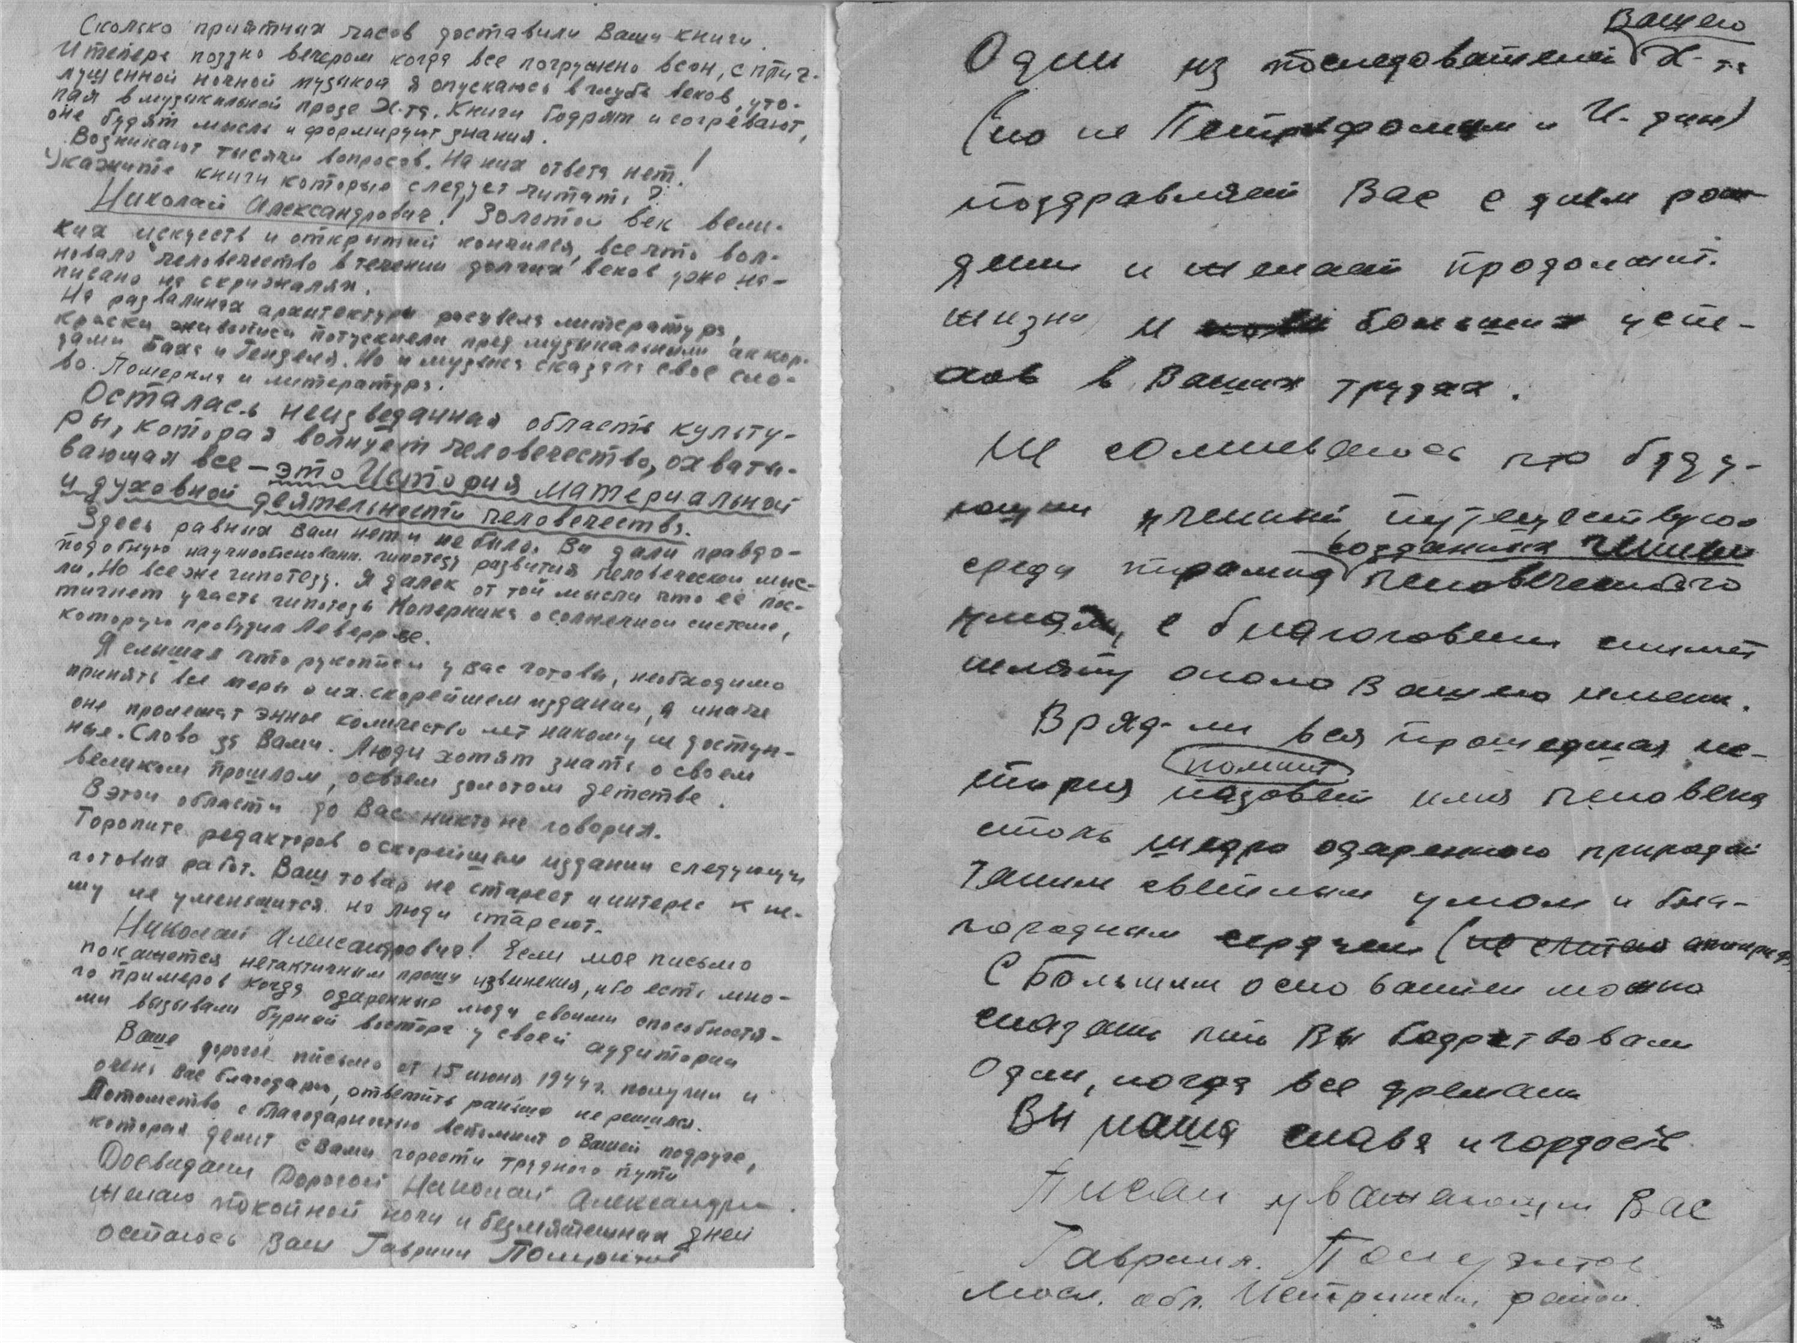 Сколько приятных часов доставили Ваши книги.
И теперь поздно вечером когда все погружено в сон, с приг-
лушенной ночной музыкой я опускаюсь вглубь веков, уто-
пая в музыкальной прозе Х-та. Книги бодрят и согревают,
оне будят мысль и формируют знания.
Возникают тысячи вопросов. На них ответа нет!
Укажите книги которые следует читать?
Николай Александрович! Золотой век вели-
ких искусств и открытий кончился, все что вол-
новало человечество в течении долгих веков уже на-
писано на скрижалях.
На развалинах архитектуры расцвела литература,
краски живописи потускнели пред музыкальными аккор-
дами Баха и Генделя. Но и музыка сказала свое сло-
во. Померкла и литература.
Осталась неизведанная область культу-
ры, которая волнует человечество, охваты-
вающая все – это История материальной
и духовной деятельности человечества.
Здесь равных вам нет и не было. Вы дали правдо-
подобную научнообоснованн. гипотезу развития человеческой мыс-
ли. Но все же гипотезу. Я далек от той мысли что её пос-
тигнет участь гипотезы Коперника о солнечной системе,
которую провѣрил Леверрье.
Я слышал что рукописи у вас готовы, необходимо
принять все меры о их скорейшем издании, а иначе
оне пролежат энное количество лет никому не доступ-
ныя. Слово за Вами. Люди хотят знать о своем
великом прошлом, о своем золотом детстве.
В этой области до Вас никто не говорил.
Торопите редакторов о скорейшем издании следующих
готовых работ. Ваш товар не стареет и интерес к не-
му не уменьшится но люди стареют.
Николай Александрович! Если мое письмо
покажется нетактичным прошу извинения, ибо есть мно-
го примеров когда одаренные люди своими способностя-
ми вызывали бурный восторг у своей аудитории
Ваше дорогое письмо от 15 июня 1944 г. получил и
очень Вас благодарю, ответить раньше не решался.
Потомство с благодарностью вспомнит о Вашей подруге,
которая делит с Вами горести трудного пути
Досвидания Дорогой Николай Александрович.
Желаю покойной ночи и безмятежных дней
остаюсь Ваш Гавриил
Один из последователей Вашего Х-та
(но не и И.
поздравляет Вас с днем рож-
дения и желает продолжит.
жизни и больших успе-
хов в Ваших трудах.
Не сомневаюсь что буду-
ющий ученый, путешествуя
среди пирамид созданных гением человеческого
ума, с благоговением снимет
шляпу около Вашего имени.
Вряд-ли вся прошедшая ис-
тория помнит назовет имя человека
столь щедро одаренного природой
таким светлым умом и бла-
городным сердцем (не считая
С большим основанием можно
сказать что Вы бодрствовали
Один, когда все дремали
Вы наша слава и гордость
Писал уважающий Вас
Гавриил.
Моск. обл. Истринский район.